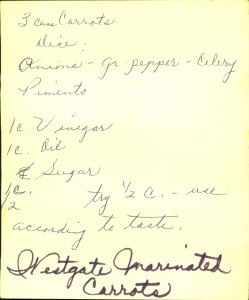 3 cans Carrots
Dice:
Onions - gr. pepper - Celery
Pimento
1c Vinegar
1c. Oil
Sugar
1/2 c. try 1/2 c. - use
according to taste.
Westgate Marinated
Carrots